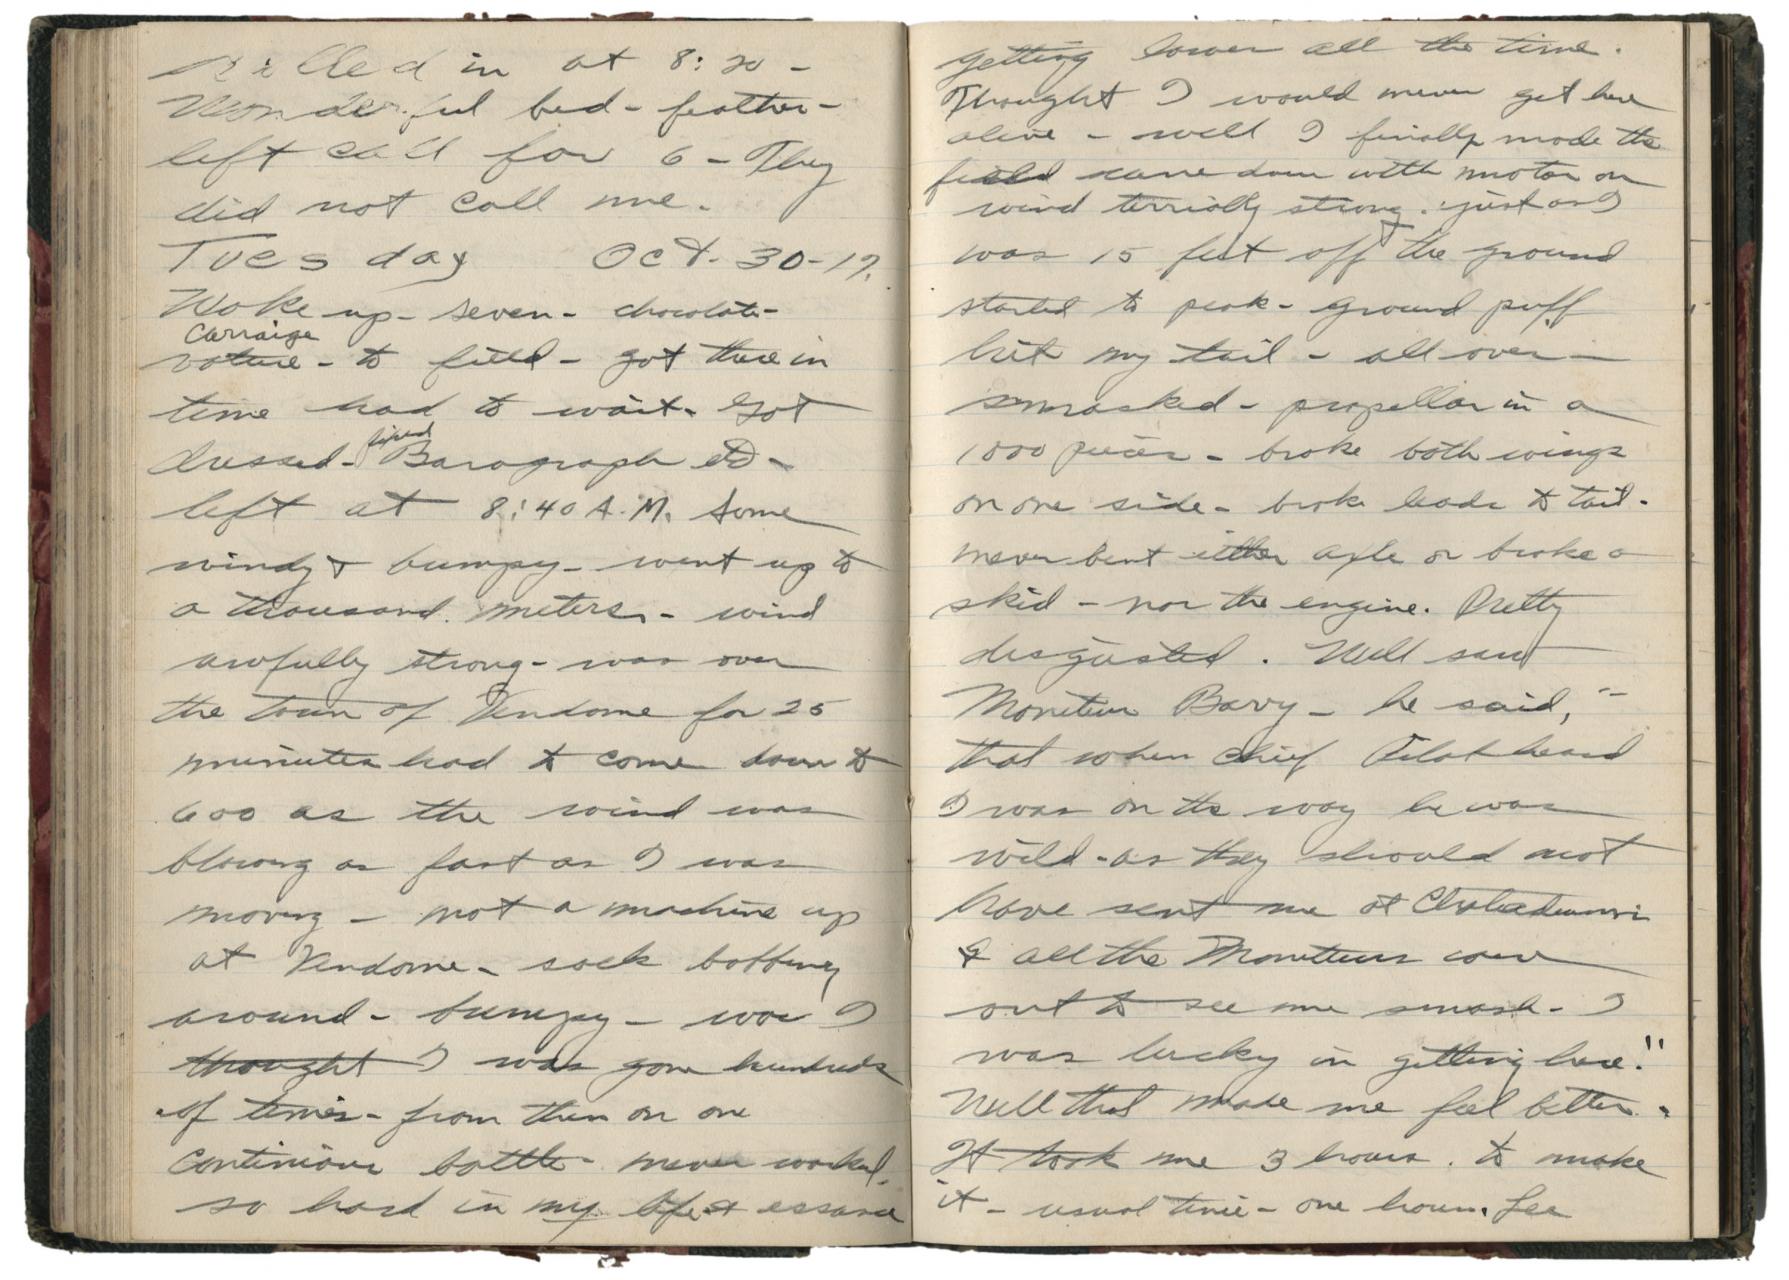 Rolled in at 8:20 -
Wonderful bed - feather -
left call for 6 - They
did not call me.
Tuesday Oct. 30-17.
Woke up - seven - chocolate -
Carraige
voture - to field - got there in
time had to wait. Got
fixed
dressed - Barograph etc -
left at 8:40 A.M. Some
windy & bumpy - went up to
a thousand meters - wind
awfully strong - was over
the town of Vendome for 25
minutes had to come down to
600 as the wind was
blowing as fast as I was
moving - not a machine up
at Vendome - sock bobbing
around - bumpy - wow I
thought I was gone hundreds
of times - from then on one
continious battle - never worked
so hard in my life & essance
getting lower all the time.
Thought I would never get here
alive - well I finally made the
field came down with motor on
wind terribly strong. just as I
was 15 feet off the ground
started to peak - ground puff
hit my tail - all over -
smashed - propellar in a
1000 pieces - broke both wings
on one side - broke leads to tail -
never bent either axle or broke a
skid - nor the engine. Pretty
disgusted. Well saw
Moniteur Bavy - he said, "
that when chief Pilot heard
I was on the way he was
wild - as they should not
have sent me at
& all the Moniteurs came
out to see me smash - I
was lucky in getting here."
Well that made me feel better.
It took me 3 hours. to make
it - usual time - one hour. Lee